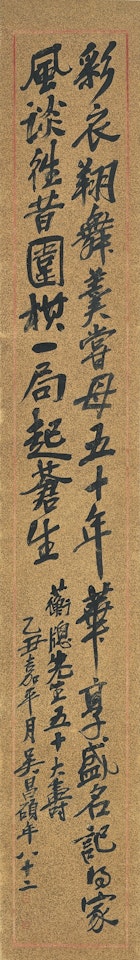 彩衣翔舞羹嘗母五十年華享盛名記得家
風談往昔圍棋一局起蒼生
蘅牕先生五十大壽
乙丑嘉平月吳昌碩年八十二